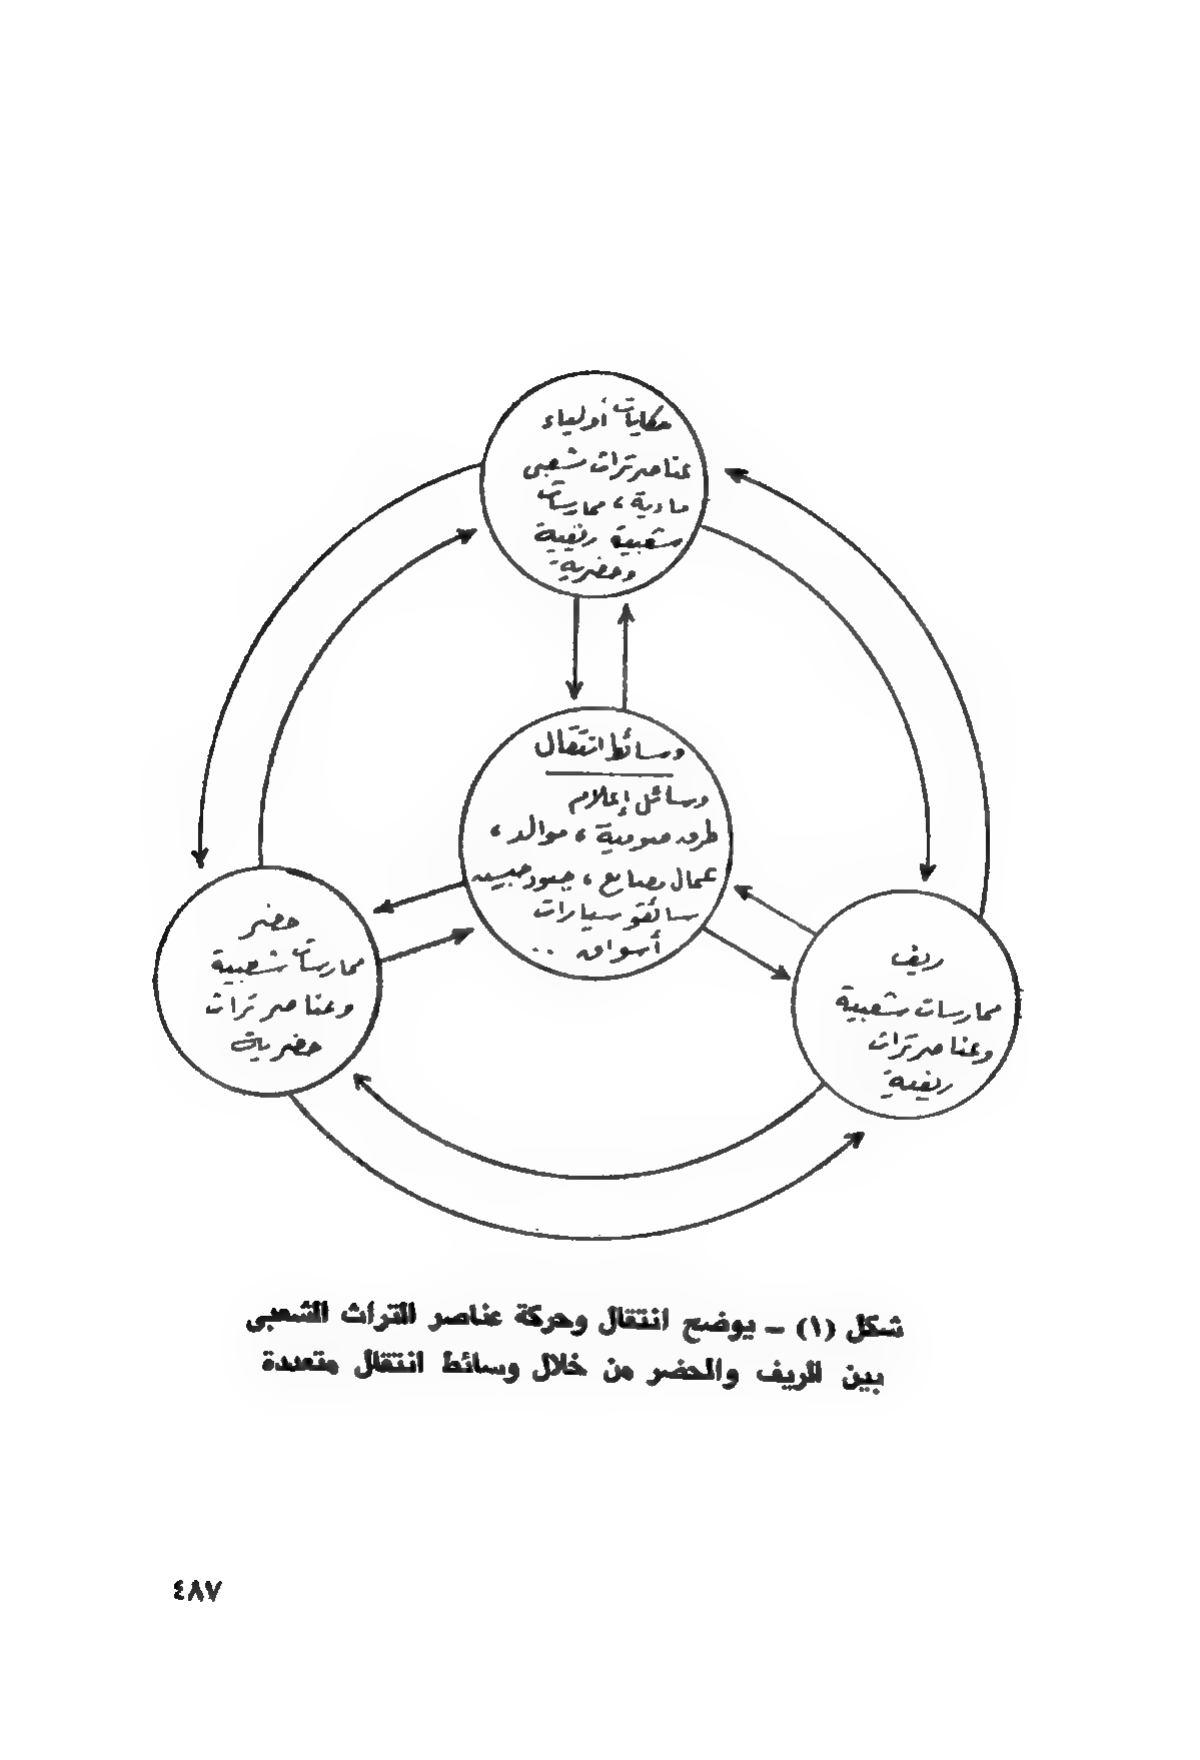 حكايات أولياء
عناصر تراث شعبى
مادية ، ممارسات
شعبية ريفية
وحضرية
وسائط انتقال
وسائل إعلام
طرق صوفية ، موالد ،
عمال مصانع ، جنود جيش
سائقو سيارات
أسواق ..
ريف
ممارسات شعبية
وعناصر تراث
ريفية
حضر
ممارسات شعبية
وعناصر تراث
حضرية
شكل (١) – يوضح انتقال وحركة عناصر التراث الشعبى
بين الريف والحضر من خلال وسائط انتقال متعددة
٤٨٧